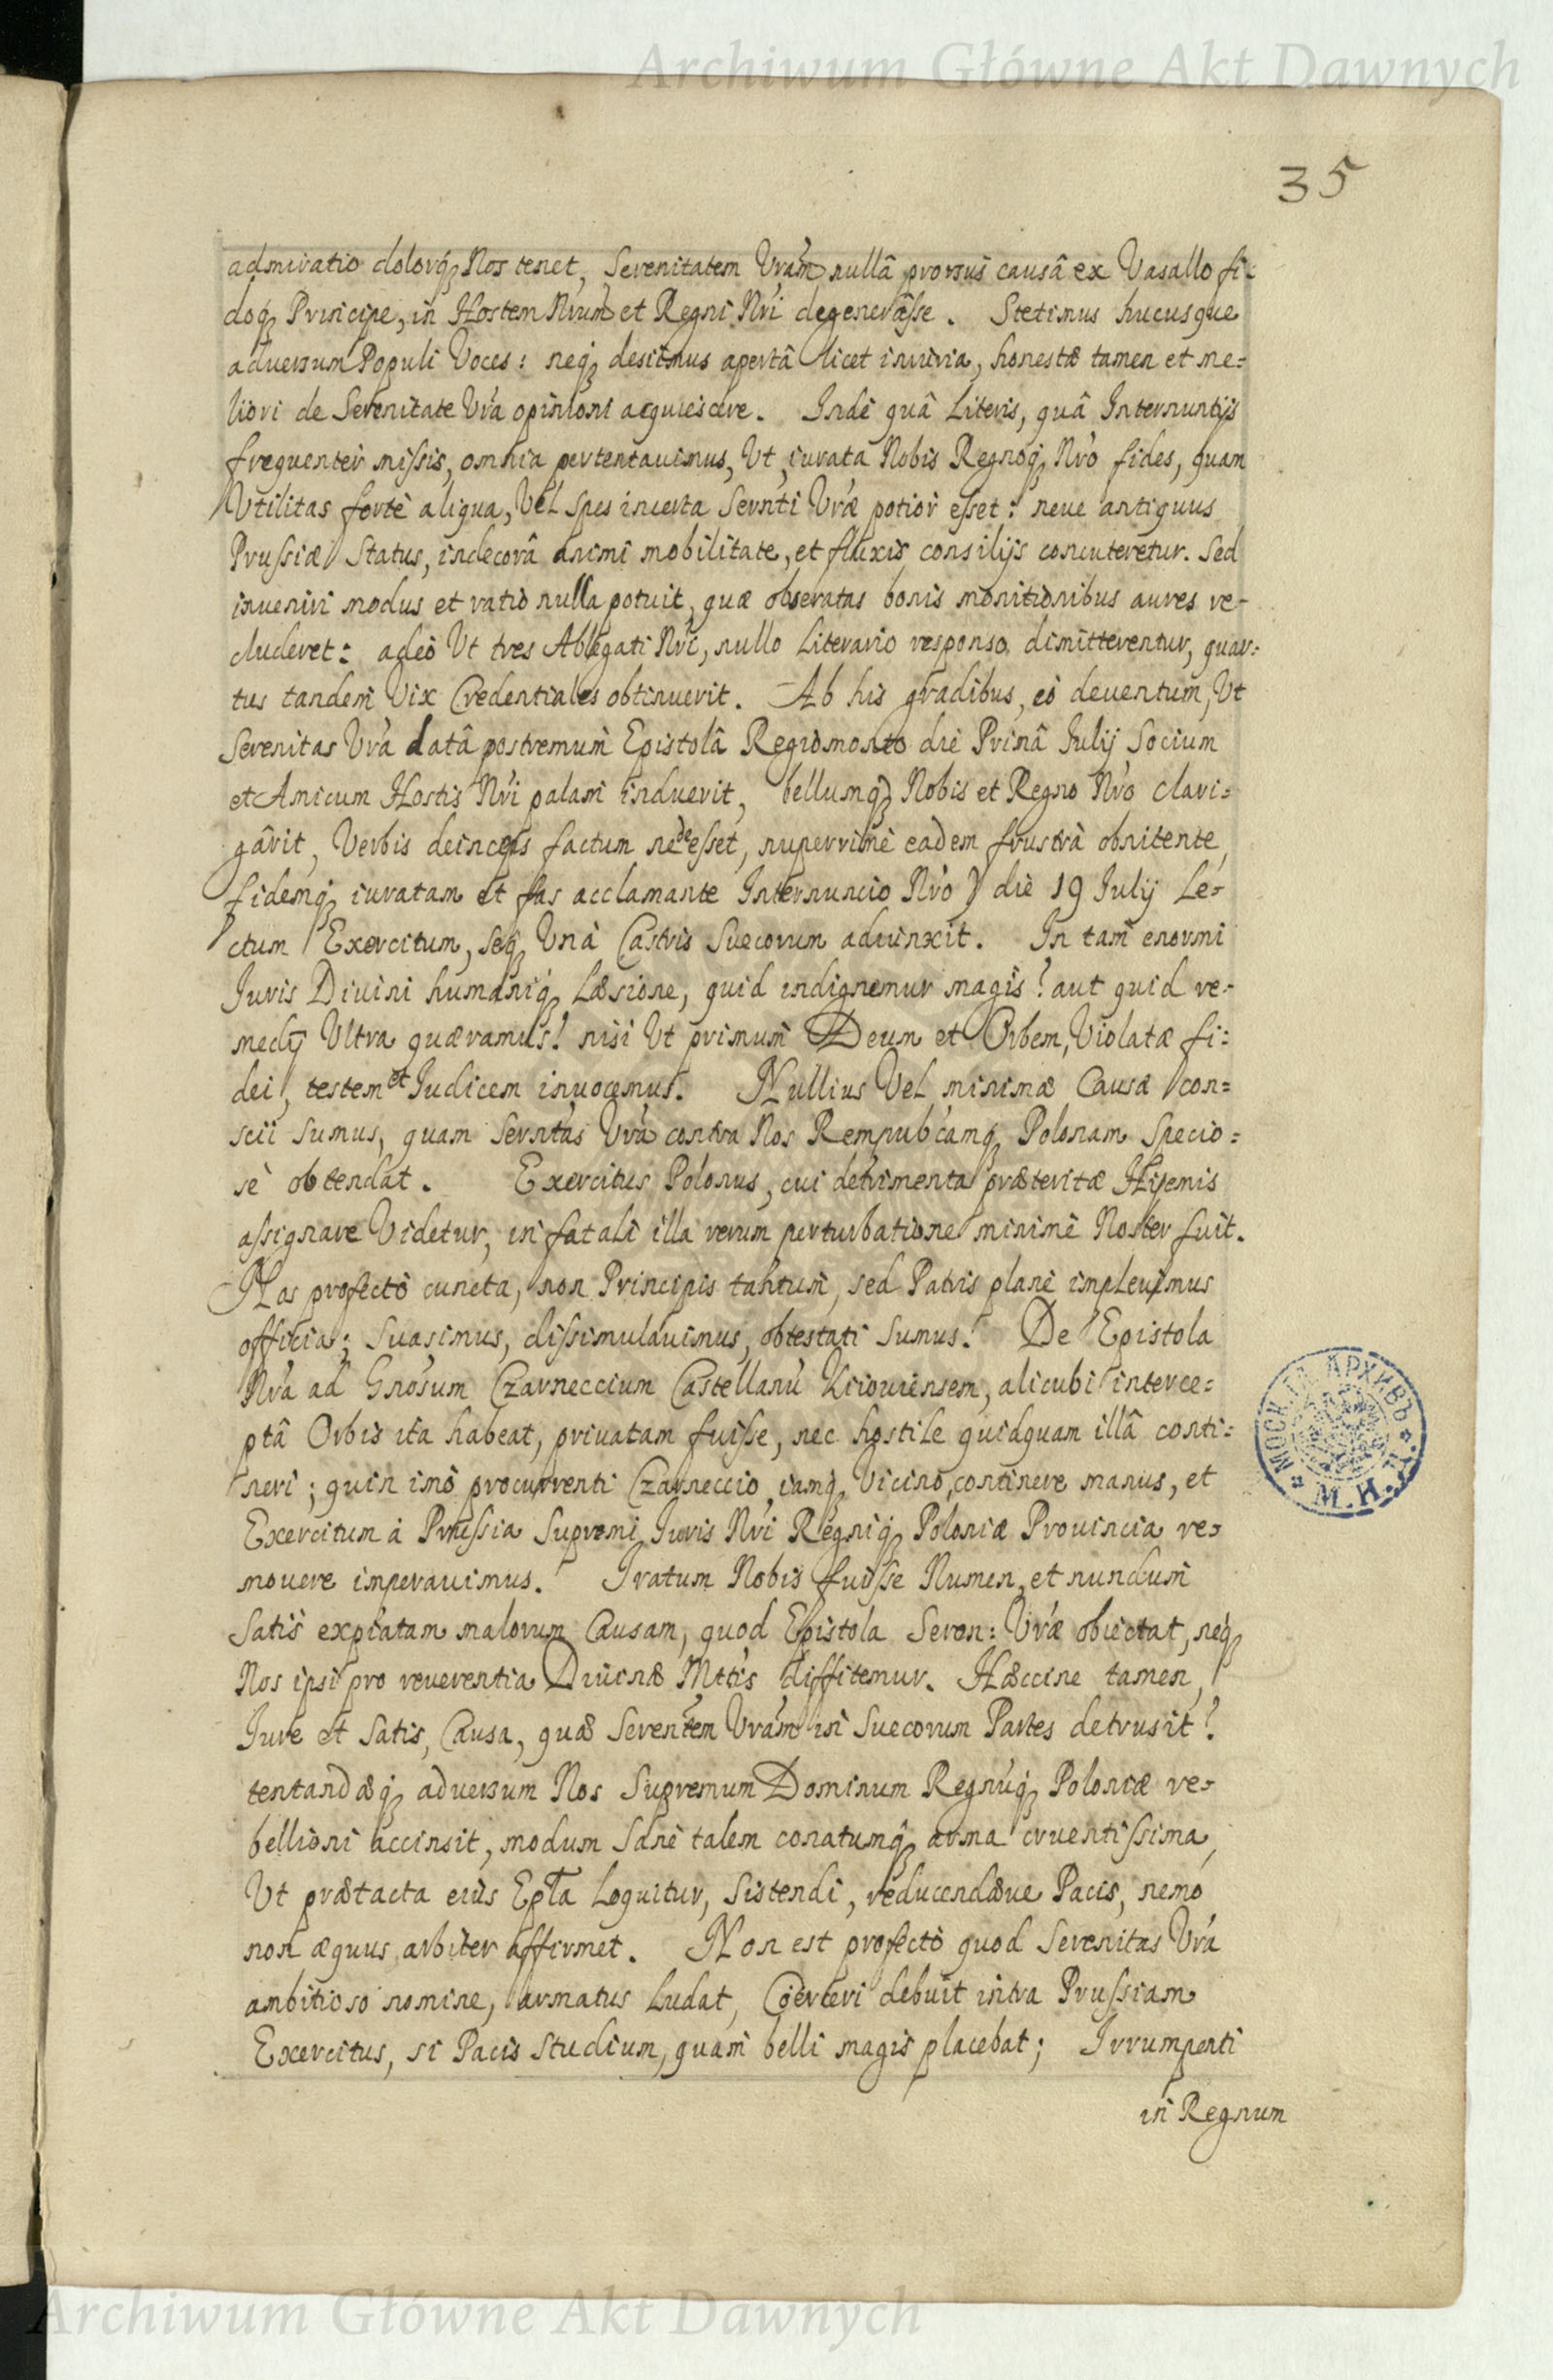 Archiwum Główne Akt Dawnych
35
admiratio dolorq̨ Nos tenet, Serenitatem Vram nullâ prorsus causâ ex Vasallo fi:
doq̨ Principe, in Hostem Nrum et Regni Nri degenerâsse. Stetimus hucusque
adversum Populi Voces: neq̨ desiimus apertâ licet iniuria, honestæ tamen et me=
liori de Serenitate Vra opinioni acquiescere. Inde quâ Literis, quâ Internuntijs
frequenter missis, omnia pertentauimus, Vt iurata Nobis Regnoq̨ Nro fides, quam
Vtilitas fortè aliqua, Vel spes incerta Sernti Vræ potior esset: neue antiquus
Prussiæ Status, indecorâ animi mobilitate, et fluxis consilijs concuteretur. Sed
inueniri modus et ratio nulla potuit, quæ obseratas bonis monitionibus aures re-
cluderet: adeò Vt tres Ablegati Nri, nullo Literario responso dimitterentur, quar:
tus tandem Vix Credentiales obtinuerit. Ab his gradibus, eò deuentum, Vt
Serenitas Vra datâ postremum Epistolâ Regiomonto die Primâ Iulij Socium
et Amicum Hostis Nri palam induerit, bellumq̨ Nobis et Regno Nro clari=
gârit, Verbis deinceps factum ne deesset, nuperrimè eadem frustrà obnitente,
fidemq̨ iuratam et fas acclamante Internuncio Nro) die 19 Iulij Le-
ctum Exercitum, seq̨ Vnà Castris Suecorum adiunxit. In tam enormi
Iuris Diuini humaniq̨ Læsione, quid indignemur magis? aut quid re-
medij Vltra quæramus! nisi Vt primum Deum et Orbem, Violatæ fi:
dei, testem et Iudicem inuocemus. Nullius Vel minimæ Causæ con=
scii sumus, quam Serntas Vra contra Nos Rempubcamq̨ Polonam specio=
sè obtendat. Exercitus Polonus, cui detrimenta præteritæ Hijemis
assignare Videtur, in fatali illa rerum perturbatione minimè Noster fuit.
Nos profectò cuncta, non Principis tantum, sed Patris planè impleuimus
officia; suasimus, dissimulauimus, obtestati sumus! De Epistola
Nra ad Gnosum Czarneccium Castellanu Kiiouiensem, alicubi interce=
ptâ Orbis ita habeat, priuatam fuisse, nec hostile quidquam illâ conti=
neri; quin imò procurrenti Czarneccio, iamq̨ Vicino, continere manus, et
Exercitum à Prussia Supremi Iuris Nri Regniq̨ Poloniæ Prouincia re-
mouere imperauimus. Iratum Nobis fuisse Numen, et nundum
satis expiatam malorum Causam, quod Epistola Seren: Vræ obiectat, neq̨
Nos ipsi pro reuerentia Diuinæ Mttis diffitemur. Hæccine tamen,
Iure et satis, Causa, quæ Serentem Vram in Suecorum Partes detrusit?
tentandæq̨ adversum Nos Supremum Dominum Regnuq̨ Poloniæ re-
bellioni accinsit, modum sanè talem conatumq̨ arma cruentissima,
Vt prætacta eius Epla Loquitur, sistendi, reducendæue Pacis, nemo
non æquus arbiter affirmet. Non est profectò quod Serenitas Vra
ambitioso nomine, armatus Ludat, Coërceri debuit intra Prussiam
Exercitus, si Pacis studium, quam belli magis placebat; Irrumpenti
in Regnum
МОСК. ГЛ. АРХИВЪ
М. И. Д.
Archiwum Główne Akt Dawnych